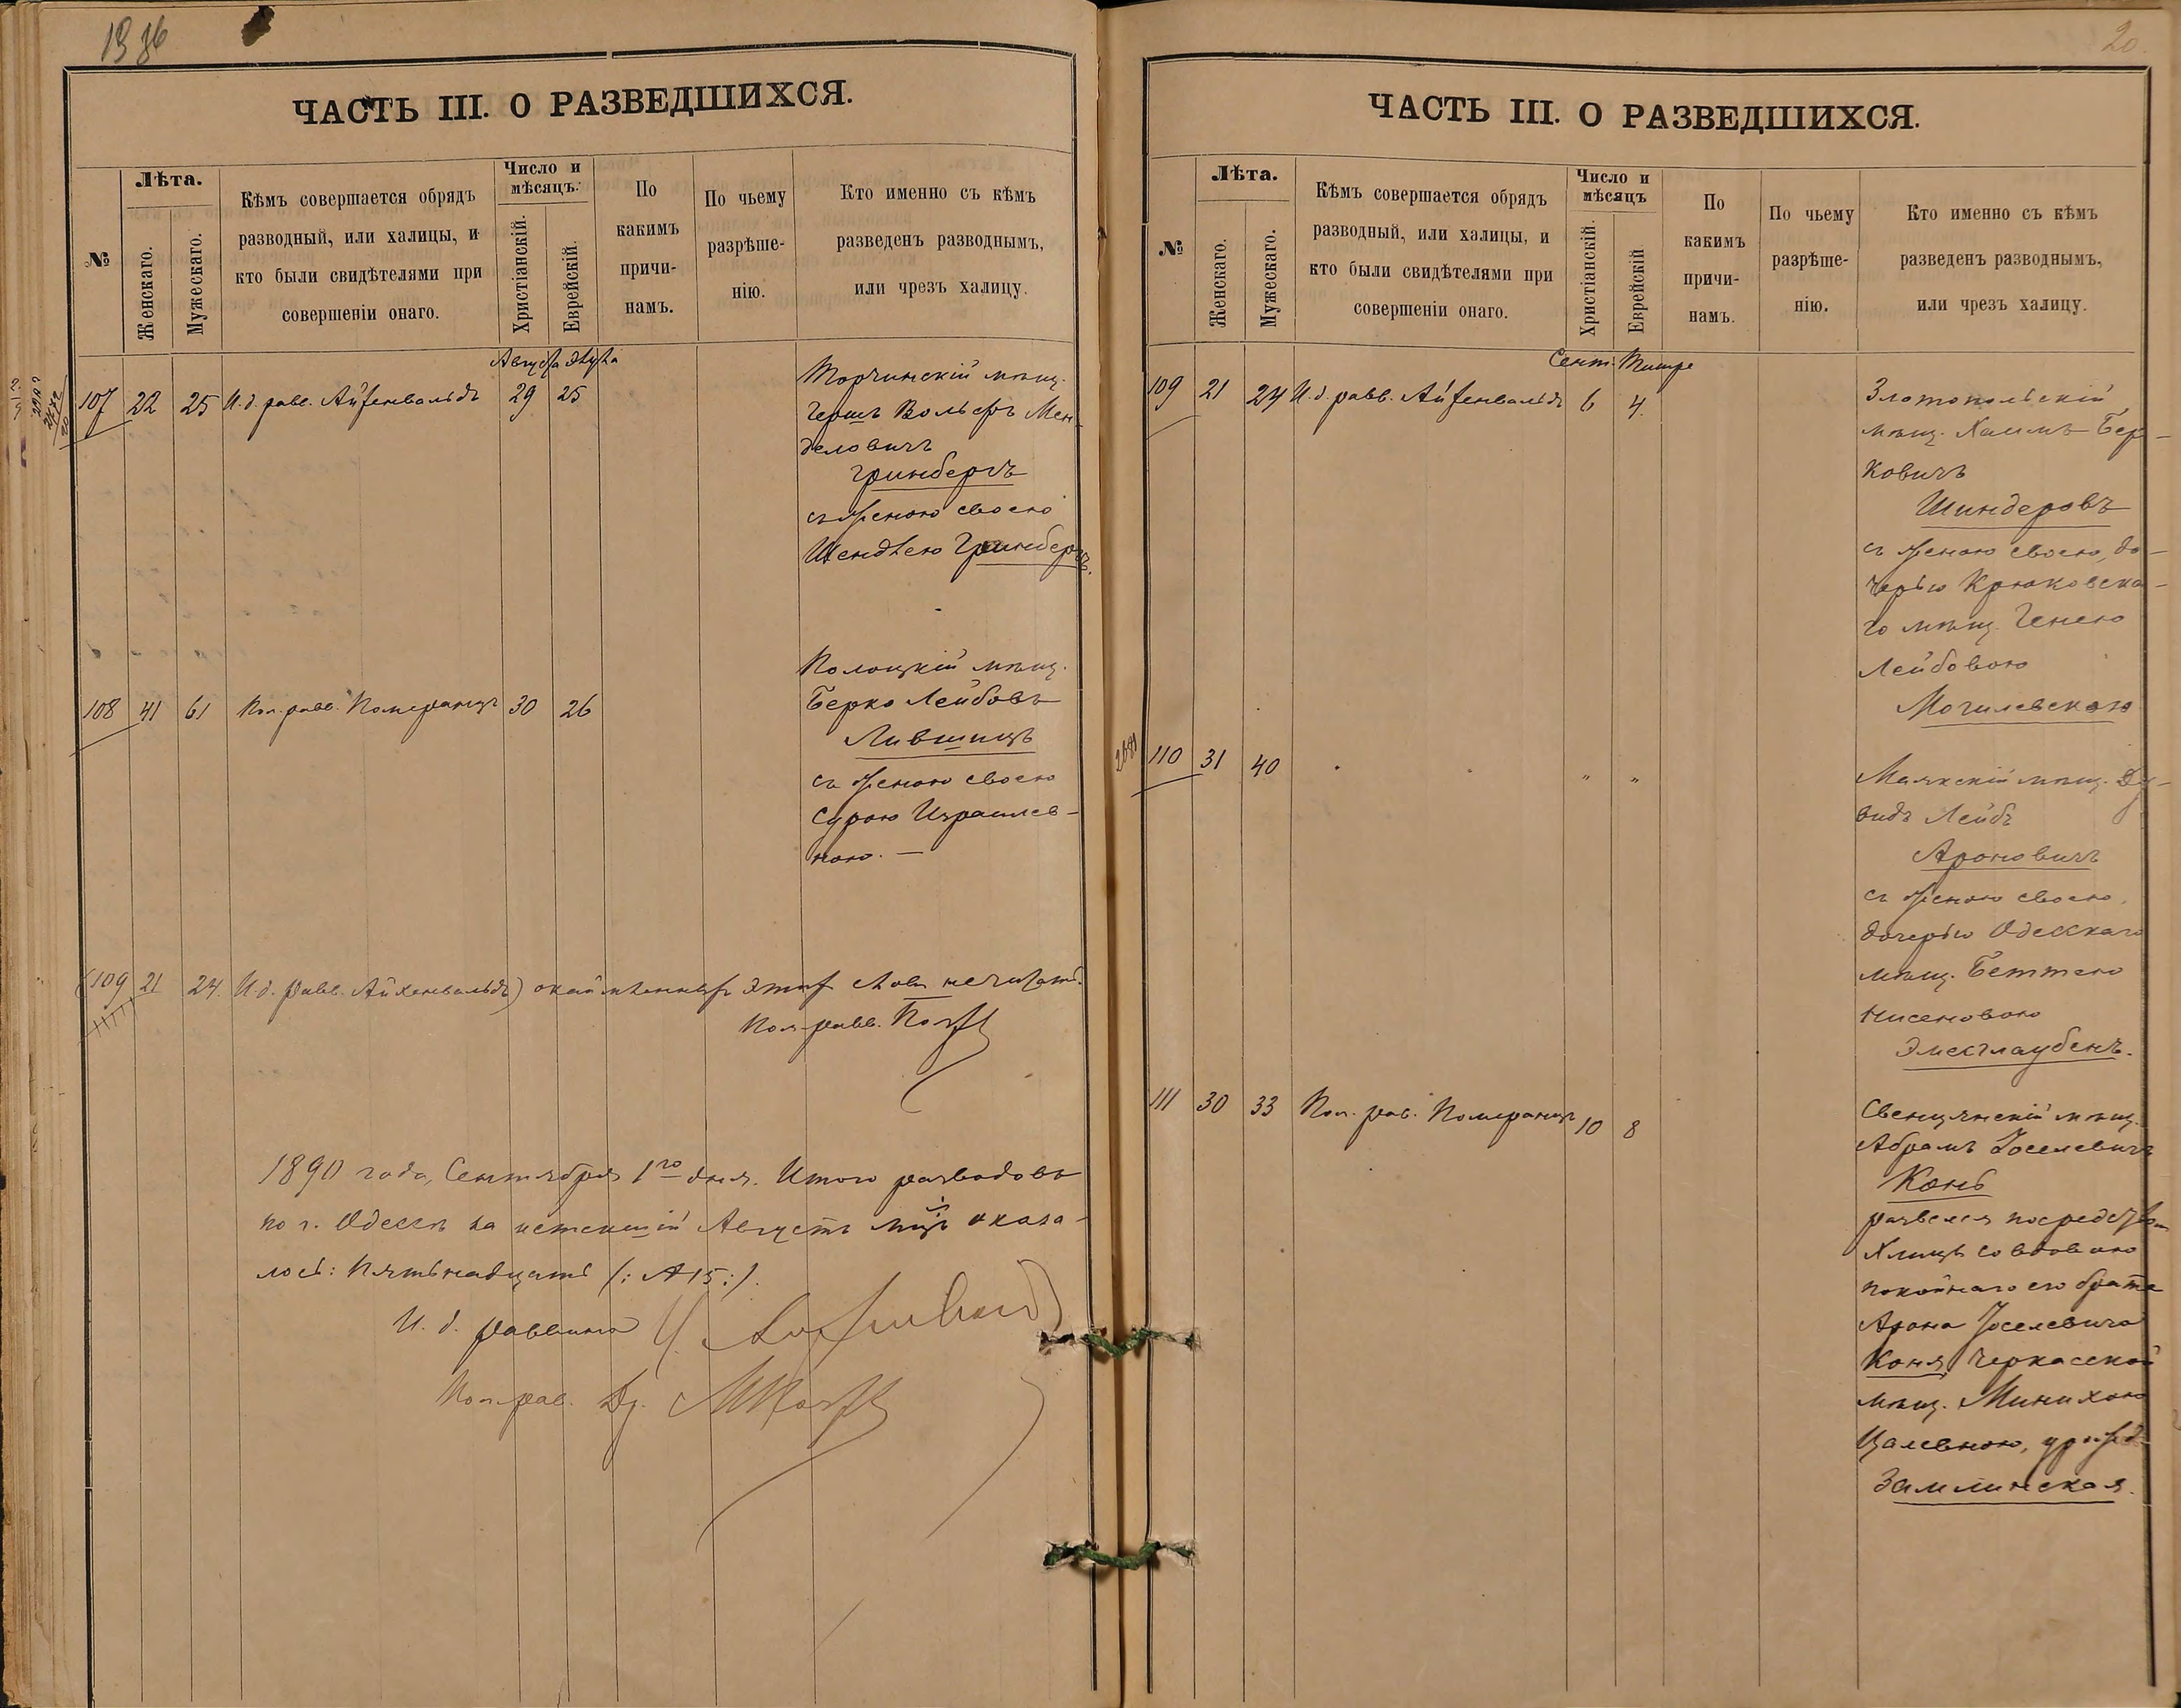 ЧАСТЬ III. О РАЗВЕДШИХСЯ.
№
Лѣта.
Женскаго.
Мужескаго.
Кѣмъ совершается обрядъ
разводный, или халицы, и
кто были свидѣтелями при
совершеніи онаго.
Число и
мѣсяцъ.
Христіанскій.
Еврейскій.
По
какимъ
причи-
намъ.
По чьему
разрѣше-
нію.
Кто именно съ кѣмъ
разведенъ разводнымъ,
или чрезъ халицу.
Августа Элула
107 22 25 И. д. равв. Айхенвальдъ 29 25
Торчинскій мѣщ.
Гершъ Вольфъ Мен-
деловичъ
Гринбергъ
съ женою своею
Шендлею Гринбергъ.
108 41 61 Пом. равв. Померанцъ 30 26
Полоцкій мѣщ.
Берко Лейбовъ
Лившицъ
съ женою своею
Сурою Израилев-
ною. —
(109 21 24. И. д. равв. Айхенвальдъ) окаймленныхъ этихъ словъ не читать.
Пом. равв.
1890 года, Сентября 1го дня. Итого разводовъ
по г. Одессѣ за истекшій Августъ мцъ оказа-
лось: Пятнадцать (: 15 :).
И. д. раввина
Пом. рав. Др.
20.
ЧАСТЬ III. О РАЗВЕДШИХСЯ.
№
Лѣта.
Женскаго.
Мужескаго.
Кѣмъ совершается обрядъ
разводный, или халицы, и
кто были свидѣтелями при
совершеніи онаго.
Число и
мѣсяцъ
Христіанскій.
Еврейскій
По
какимъ
причи-
намъ.
По чьему
разрѣше-
нію.
Кто именно съ кѣмъ
разведенъ разводнымъ,
или чрезъ халицу.
Сент. Тишре
109 21 24 И. д. равв. Айхенвальдъ 6 4.
Златопольскій
мѣщ. Хаимъ Бер-
ковичъ
Шиндеровъ
съ женою своею, до-
черью Крюковска-
го мѣщ. Генею
Лейбовою
Могилевскою
110 31 40 " " " "
Маякскій мѣщ. Ду-
видъ Лейбъ
Ароновичъ
съ женою своею,
дочерью Одесскаго
мѣщ. Беттею
Нисеновою
Элисглаубенъ.
111 30 33 Пом. рав. Померанцъ 10 8
Свенцянскій мѣщ.
Абрамъ Іоселевичъ
Конь
развелся посредством
Хлицы со вдовою
покойнаго его брата
Арона Іоселевича
Коня, Черкасской
мѣщ. Минихою
Цалевною, урожд.
Замлинская.